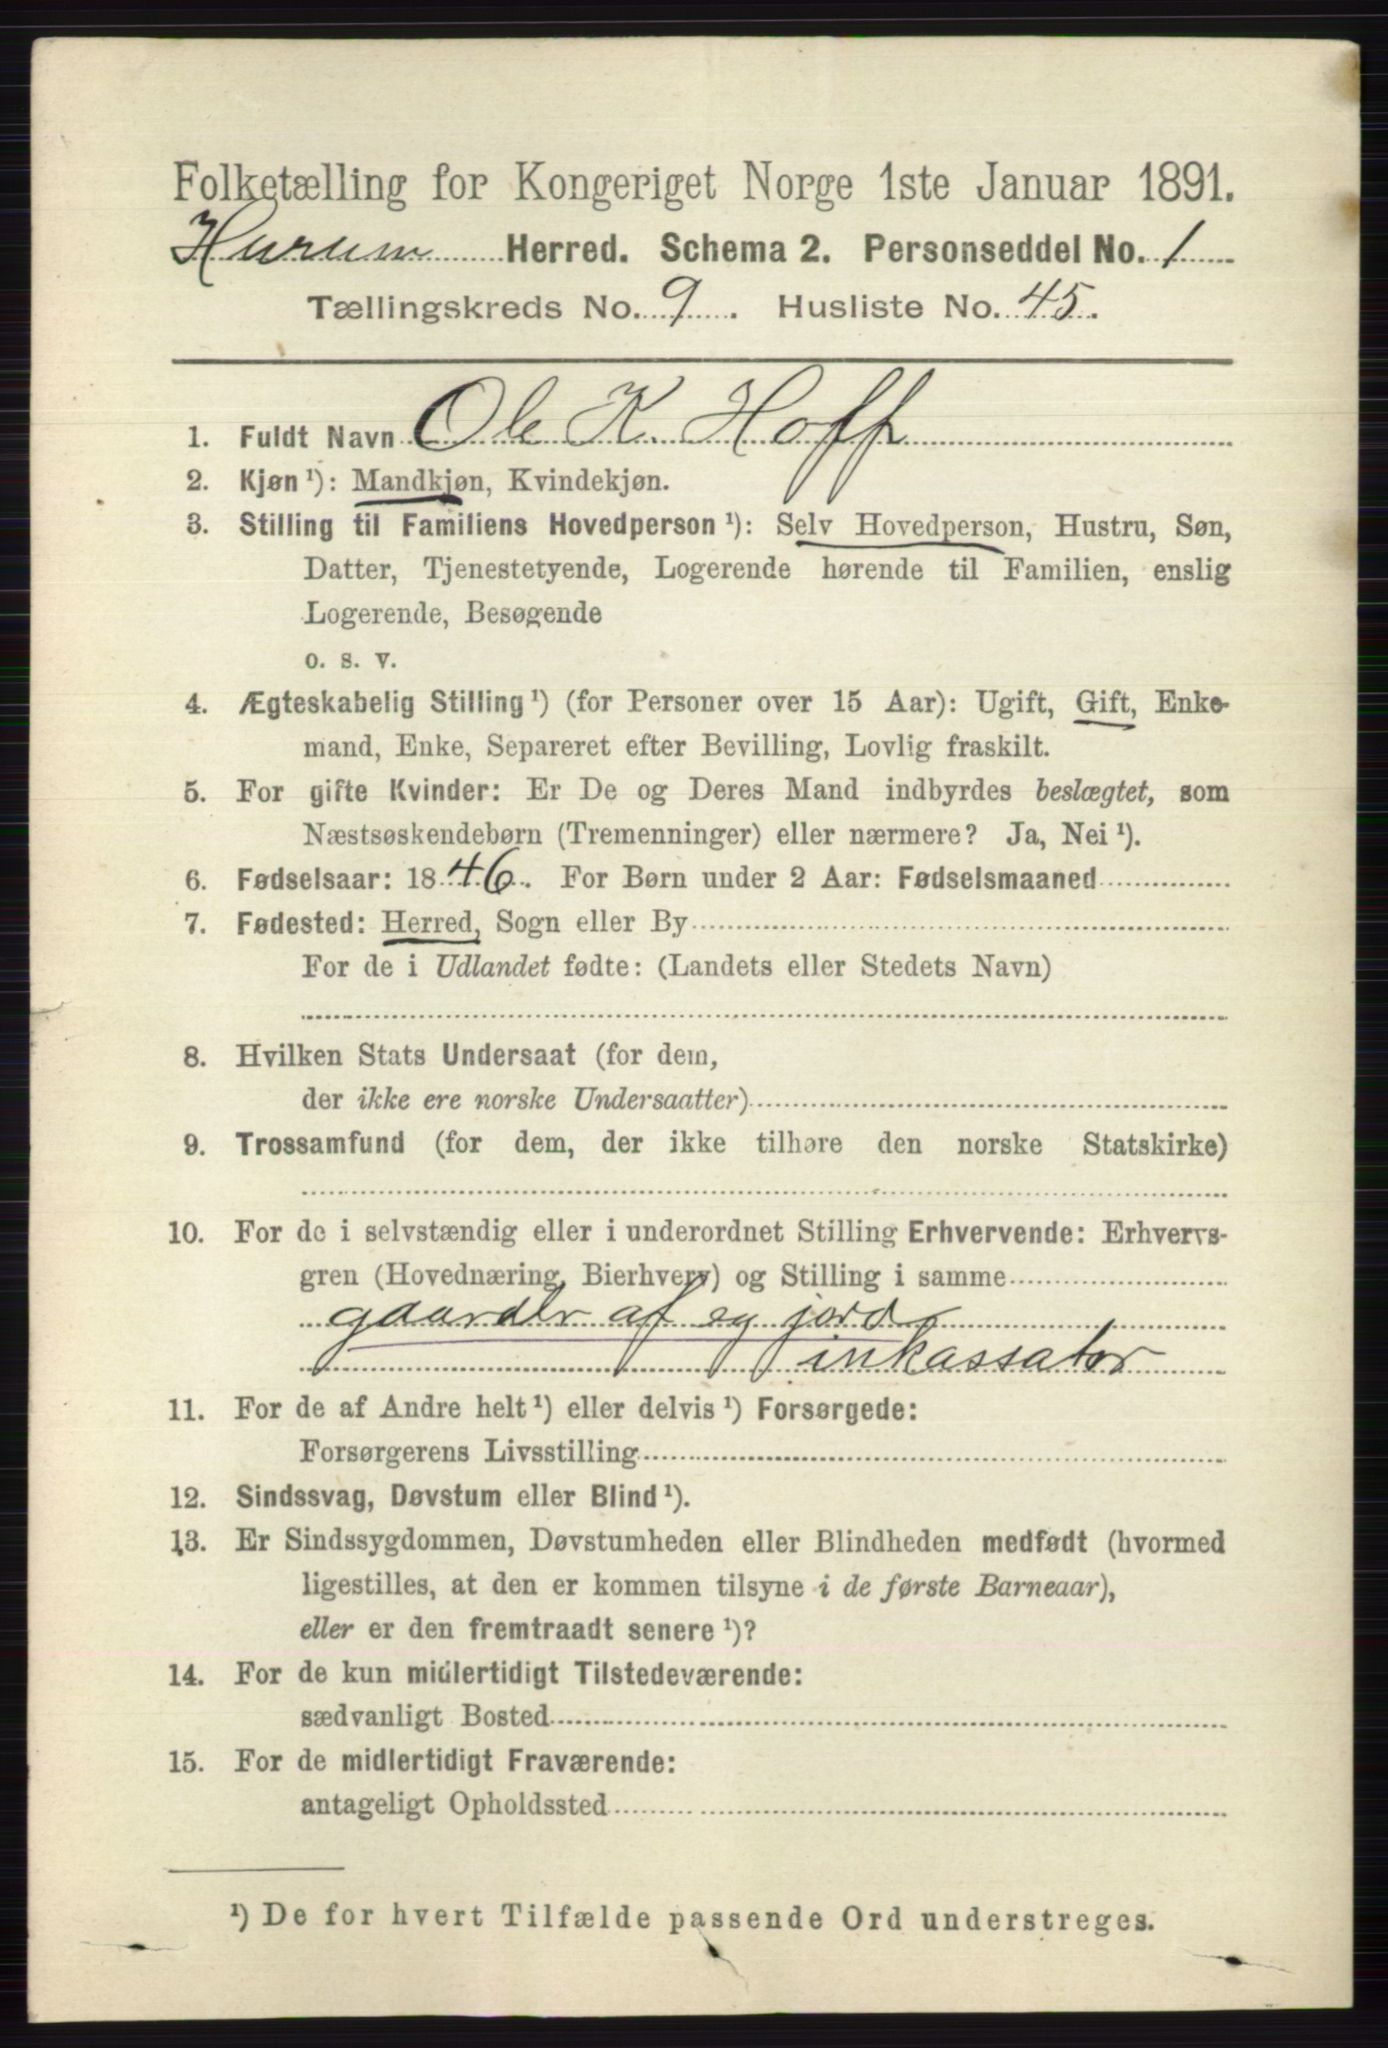 Folketælling for Kongeriget Norge 1ste Januar 1891.
Hurum Herred. Schema 2. Personseddel No. 1
Tællingskreds No. 9. Husliste No. 45.
1. Fuldt Navn Ole K. Hoff
2. Kjøn ¹): Mandkjøn, Kvindekjøn.
3. Stilling til Familiens Hovedperson ¹): Selv Hovedperson, Hustru, Søn,
Datter, Tjenestetyende, Logerende hørende til Familien, enslig
Logerende, Besøgende
o. s. v.
4. Ægteskabelig Stilling ¹) (for Personer over 15 Aar): Ugift, Gift, Enke-
mand, Enke, Separeret efter Bevilling, Lovlig fraskilt.
5. For gifte Kvinder: Er De og Deres Mand indbyrdes beslægtet, som
Næstsøskendebørn (Tremenninger) eller nærmere? Ja, Nei ¹).
6. Fødselsaar: 1846. For Børn under 2 Aar: Fødselsmaaned
7. Fødested: Herred, Sogn eller By
For de i Udlandet fødte: (Landets eller Stedets Navn)
8. Hvilken Stats Undersaat (for dem,
der ikke ere norske Undersaatter)
9. Trossamfund (for dem, der ikke tilhøre den norske Statskirke)
10. For de i selvstændig eller i underordnet Stilling Erhvervende: Erhvervs-
gren (Hovednæring, Bierhverv) og Stilling i samme
gaardbr af eg jord
inkassator
11. For de af Andre helt ¹) eller delvis ¹) Forsørgede:
Forsørgerens Livsstilling
12. Sindssvag, Døvstum eller Blind ¹).
13. Er Sindssygdommen, Døvstumheden eller Blindheden medfødt (hvormed
ligestilles, at den er kommen tilsyne i de første Barneaar),
eller er den fremtraadt senere ¹)?
14. For de kun midlertidigt Tilstedeværende:
sædvanligt Bosted
15. For de midlertidigt Fraværende:
antageligt Opholdssted
¹) De for hvert Tilfælde passende Ord understreges.